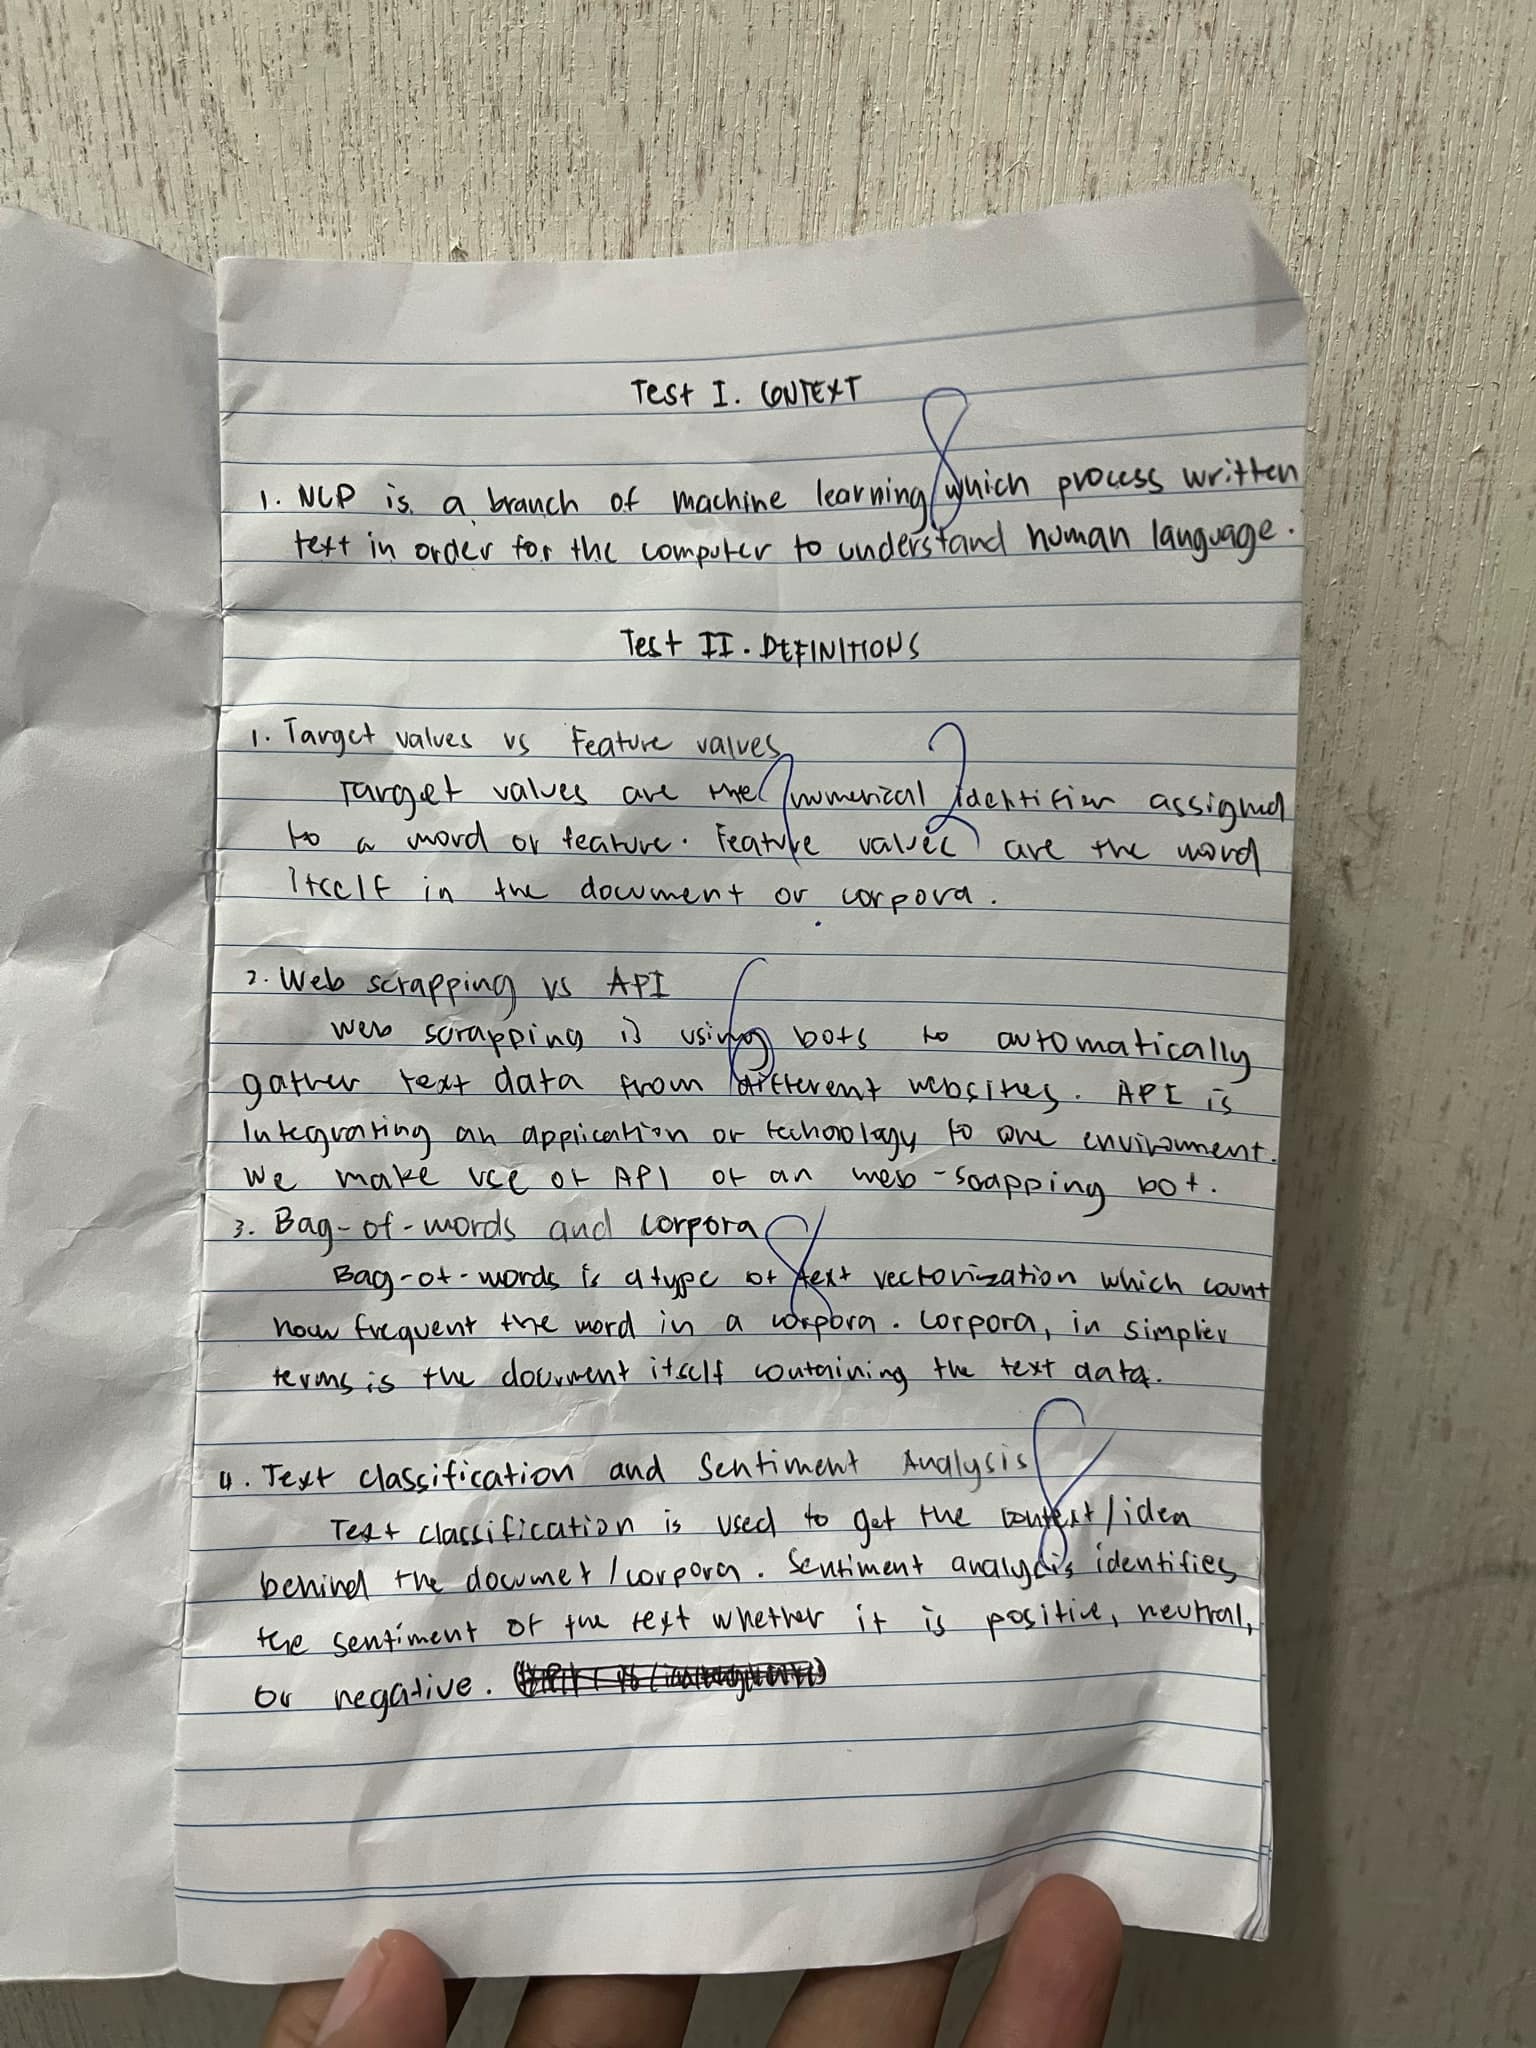 Test I. CONTEXT
8
1. NLP is a branch of machine learning which process written
text in order for the computer to understand human language.
Test II. DEFINITIONS
1. Target values vs Feature values
2
Target values are the numerical identifier assigned
to a word or feature. Feature values are the word
itself in the document or corpora.
2. Web scrapping vs API
6
Web scrapping is using bots to automatically
gather text data from different websites. API is
integrating an application or technology to one environment.
We make use of API of an web-scrapping bot.
3. Bag-of-words and corpora
8
Bag-of-words is a type of text vectorization which count
how frequent the word in a corpora. Corpora, in simpler
terms is the document itself containing the text data.
4. Text classification and Sentiment Analysis
8
Text classification is used to get the context/idea
behind the documet/corpora. Sentiment analysis identifies
the sentiment of the text whether it is positive, neutral,
or negative.